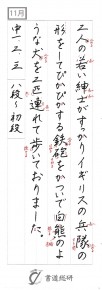 11月
二人の若い紳士がすっかりイギリスの兵隊の
形をしてぴかぴかする鉄砲をかついで白熊のよ
うな犬を二匹連れて歩いておりました。
中一、二、三 八段〜初段
書道総研